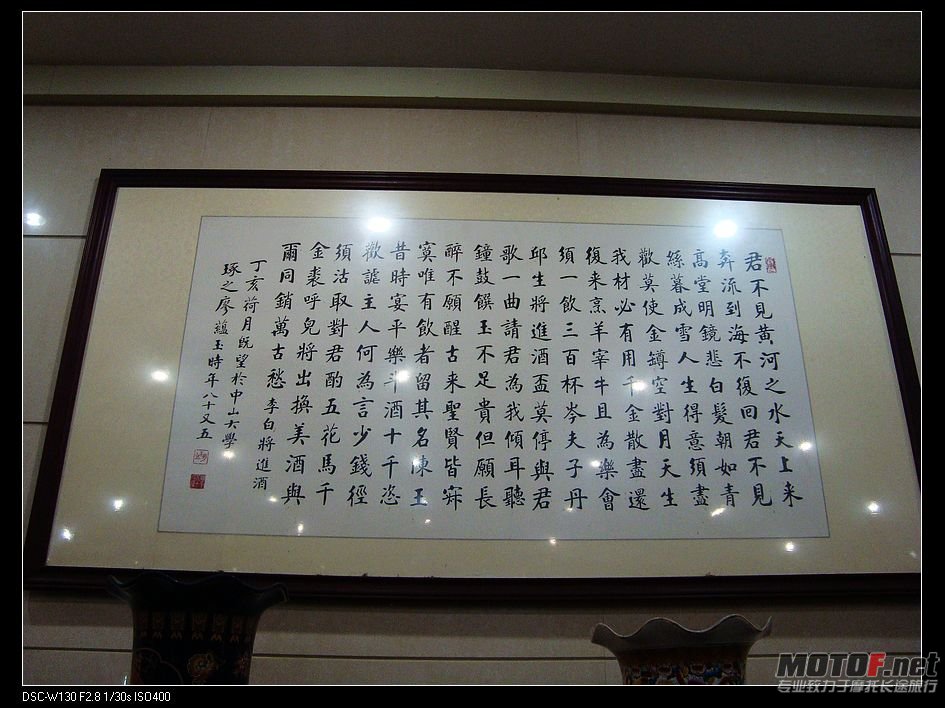 君不見黄河之水天上来
奔流到海不復回君不見
高堂明鏡悲白髮朝如青
絲暮成雪人生得意須盡
歡莫使金罇空對月天生
我材必有用千金散盡還
復来烹羊宰牛且為樂會
須一飲三百杯岑夫子丹
邱生將進酒盃莫停與君
歌一曲請君為我傾耳聽
鐘鼓饌玉不足貴但願長
醉不願醒古来聖賢皆寂
寞唯有飲者留其名陳王
昔時宴平樂斗酒十千恣
歡謔主人何為言少錢徑
須沽取對君酌五花馬千
金裘呼兒將出換美酒與
爾同銷萬古愁 李白將進酒
丁亥荷月既望於中山大學
琢之廖蘊玉時年八十又五
MOTOF.net
专业致力于摩托长途旅行
DSC-W130 F2.8 1/30s ISO400